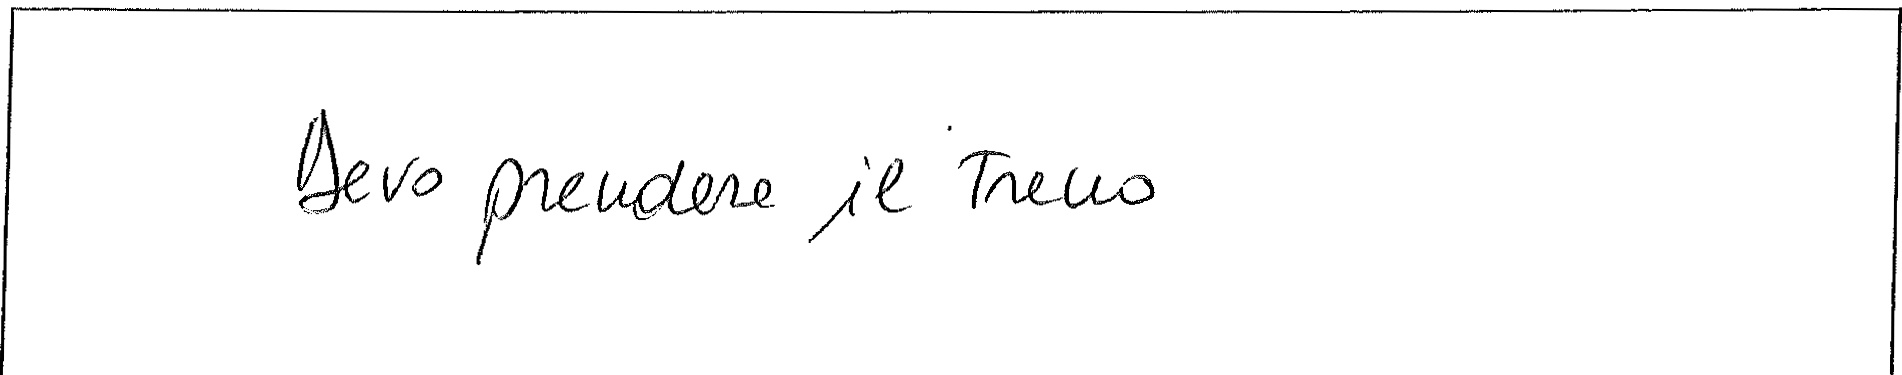 Devo prendere il Treno